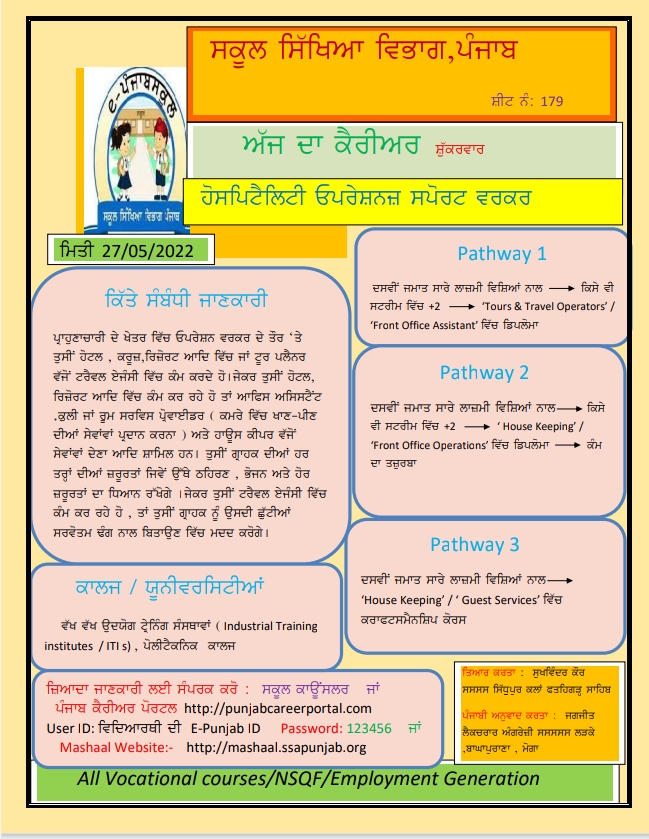 ਸਕੂਲ ਸਿੱਖਿਆ ਵਿਭਾਗ,ਪੰਜਾਬ
ਸ਼ੀਟ ਨੰ: 179
e-ਪੰਜਾਬਸਕੂਲ
ਸਕੂਲ ਸਿੱਖਿਆ ਵਿਭਾਗ ਪੰਜਾਬ
ਅੱਜ ਦਾ ਕੈਰੀਅਰ ਸ਼ੁੱਕਰਵਾਰ
ਹੋਸਪਿਟੈਲਿਟੀ ਓਪਰੇਸ਼ਨਜ਼ ਸਪੋਰਟ ਵਰਕਰ
ਮਿਤੀ 27/05/2022
ਕਿੱਤੇ ਸੰਬੰਧੀ ਜਾਣਕਾਰੀ
ਪ੍ਰਾਹੁਣਾਚਾਰੀ ਦੇ ਖੇਤਰ ਵਿੱਚ ਓਪਰੇਸ਼ਨ ਵਰਕਰ ਦੇ ਤੌਰ ‘ਤੇ
ਤੁਸੀਂ ਹੋਟਲ , ਕਰੂਜ਼,ਰਿਜ਼ੋਰਟ ਆਦਿ ਵਿੱਚ ਜਾਂ ਟੂਰ ਪਲੈਨਰ
ਵੱਜੋਂ ਟਰੈਵਲ ਏਜੰਸੀ ਵਿੱਚ ਕੰਮ ਕਰਦੇ ਹੋ।ਜੇਕਰ ਤੁਸੀਂ ਹੋਟਲ,
ਰਿਜ਼ੋਰਟ ਆਦਿ ਵਿੱਚ ਕੰਮ ਕਰ ਰਹੇ ਹੋ ਤਾਂ ਆਫਿਸ ਅਸਿਸਟੈਂਟ
,ਕੁਲੀ ਜਾਂ ਰੂਮ ਸਰਵਿਸ ਪ੍ਰੋਵਾਈਡਰ ( ਕਮਰੇ ਵਿੱਚ ਖਾਣ-ਪੀਣ
ਦੀਆਂ ਸੇਵਾਂਵਾਂ ਪ੍ਰਦਾਨ ਕਰਨਾ ) ਅਤੇ ਹਾਊਸ ਕੀਪਰ ਵੱਜੋਂ
ਸੇਵਾਂਵਾਂ ਦੇਣਾ ਆਦਿ ਸ਼ਾਮਿਲ ਹਨ। ਤੁਸੀਂ ਗ੍ਰਾਹਕ ਦੀਆਂ ਹਰ
ਤਰ੍ਹਾਂ ਦੀਆਂ ਜ਼ਰੂਰਤਾਂ ਜਿਵੇਂ ਉੱਥੇ ਠਹਿਰਣ , ਭੋਜਨ ਅਤੇ ਹੋਰ
ਜ਼ਰੂਰਤਾਂ ਦਾ ਧਿਆਨ ਰੱਖੋਗੇ ।ਜੇਕਰ ਤੁਸੀਂ ਟਰੈਵਲ ਏਜੰਸੀ ਵਿੱਚ
ਕੰਮ ਕਰ ਰਹੇ ਹੋ , ਤਾਂ ਤੁਸੀਂ ਗ੍ਰਾਹਕ ਨੂੰ ਉਸਦੀ ਛੁੱਟੀਆਂ
ਸਰਵੋਤਮ ਢੰਗ ਨਾਲ ਬਿਤਾਉਣ ਵਿੱਚ ਮਦਦ ਕਰੋਗੇ।
Pathway 1
ਦਸਵੀਂ ਜਮਾਤ ਸਾਰੇ ਲਾਜ਼ਮੀ ਵਿਸ਼ਿਆਂ ਨਾਲ → ਕਿਸੇ ਵੀ
ਸਟਰੀਮ ਵਿੱਚ +2 → ‘Tours & Travel Operators’ /
‘Front Office Assistant’ ਵਿੱਚ ਡਿਪਲੋਮਾ
Pathway 2
ਦਸਵੀਂ ਜਮਾਤ ਸਾਰੇ ਲਾਜ਼ਮੀ ਵਿਸ਼ਿਆਂ ਨਾਲ → ਕਿਸੇ
ਵੀ ਸਟਰੀਮ ਵਿੱਚ +2 → ‘ House Keeping’ /
‘Front Office Operations’ ਵਿੱਚ ਡਿਪਲੋਮਾ → ਕੰਮ
ਦਾ ਤਜ਼ੁਰਬਾ
Pathway 3
ਦਸਵੀਂ ਜਮਾਤ ਸਾਰੇ ਲਾਜ਼ਮੀ ਵਿਸ਼ਿਆਂ ਨਾਲ →
‘House Keeping’ / ‘ Guest Services’ ਵਿੱਚ
ਕਰਾਫਟਸਮੈਨਸ਼ਿਪ ਕੋਰਸ
ਕਾਲਜ / ਯੂਨੀਵਰਸਿਟੀਆਂ
ਵੱਖ ਵੱਖ ਉਦਯੋਗ ਟ੍ਰੇਨਿੰਗ ਸੰਸਥਾਵਾਂ ( Industrial Training
institutes / ITI s) , ਪੋਲੀਟੈਕਨਿਕ ਕਾਲਜ
ਜ਼ਿਆਦਾ ਜਾਣਕਾਰੀ ਲਈ ਸੰਪਰਕ ਕਰੋ : ਸਕੂਲ ਕਾਊਂਸਲਰ ਜਾਂ
ਪੰਜਾਬ ਕੈਰੀਅਰ ਪੋਰਟਲ http://punjabcareerportal.com
User ID: ਵਿਦਿਆਰਥੀ ਦੀ E-Punjab ID Password: 123456 ਜਾਂ
Mashaal Website:- http://mashaal.ssapunjab.org
ਤਿਆਰ ਕਰਤਾ : ਸੁਖਵਿੰਦਰ ਕੌਰ
ਸਸਸਸ ਸਿੱਧੁਪੁਰ ਕਲਾਂ ਫਤਹਿਗੜ੍ਹ ਸਾਹਿਬ
ਪੰਜਾਬੀ ਅਨੁਵਾਦ ਕਰਤਾ : ਜਗਜੀਤ
ਲੈਕਚਰਾਰ ਅੰਗਰੇਜ਼ੀ ਸਸਸਸਸ ਲੜਕੇ
,ਬਾਘਾਪੁਰਾਣਾ , ਮੋਗਾ
All Vocational courses/NSQF/Employment Generation